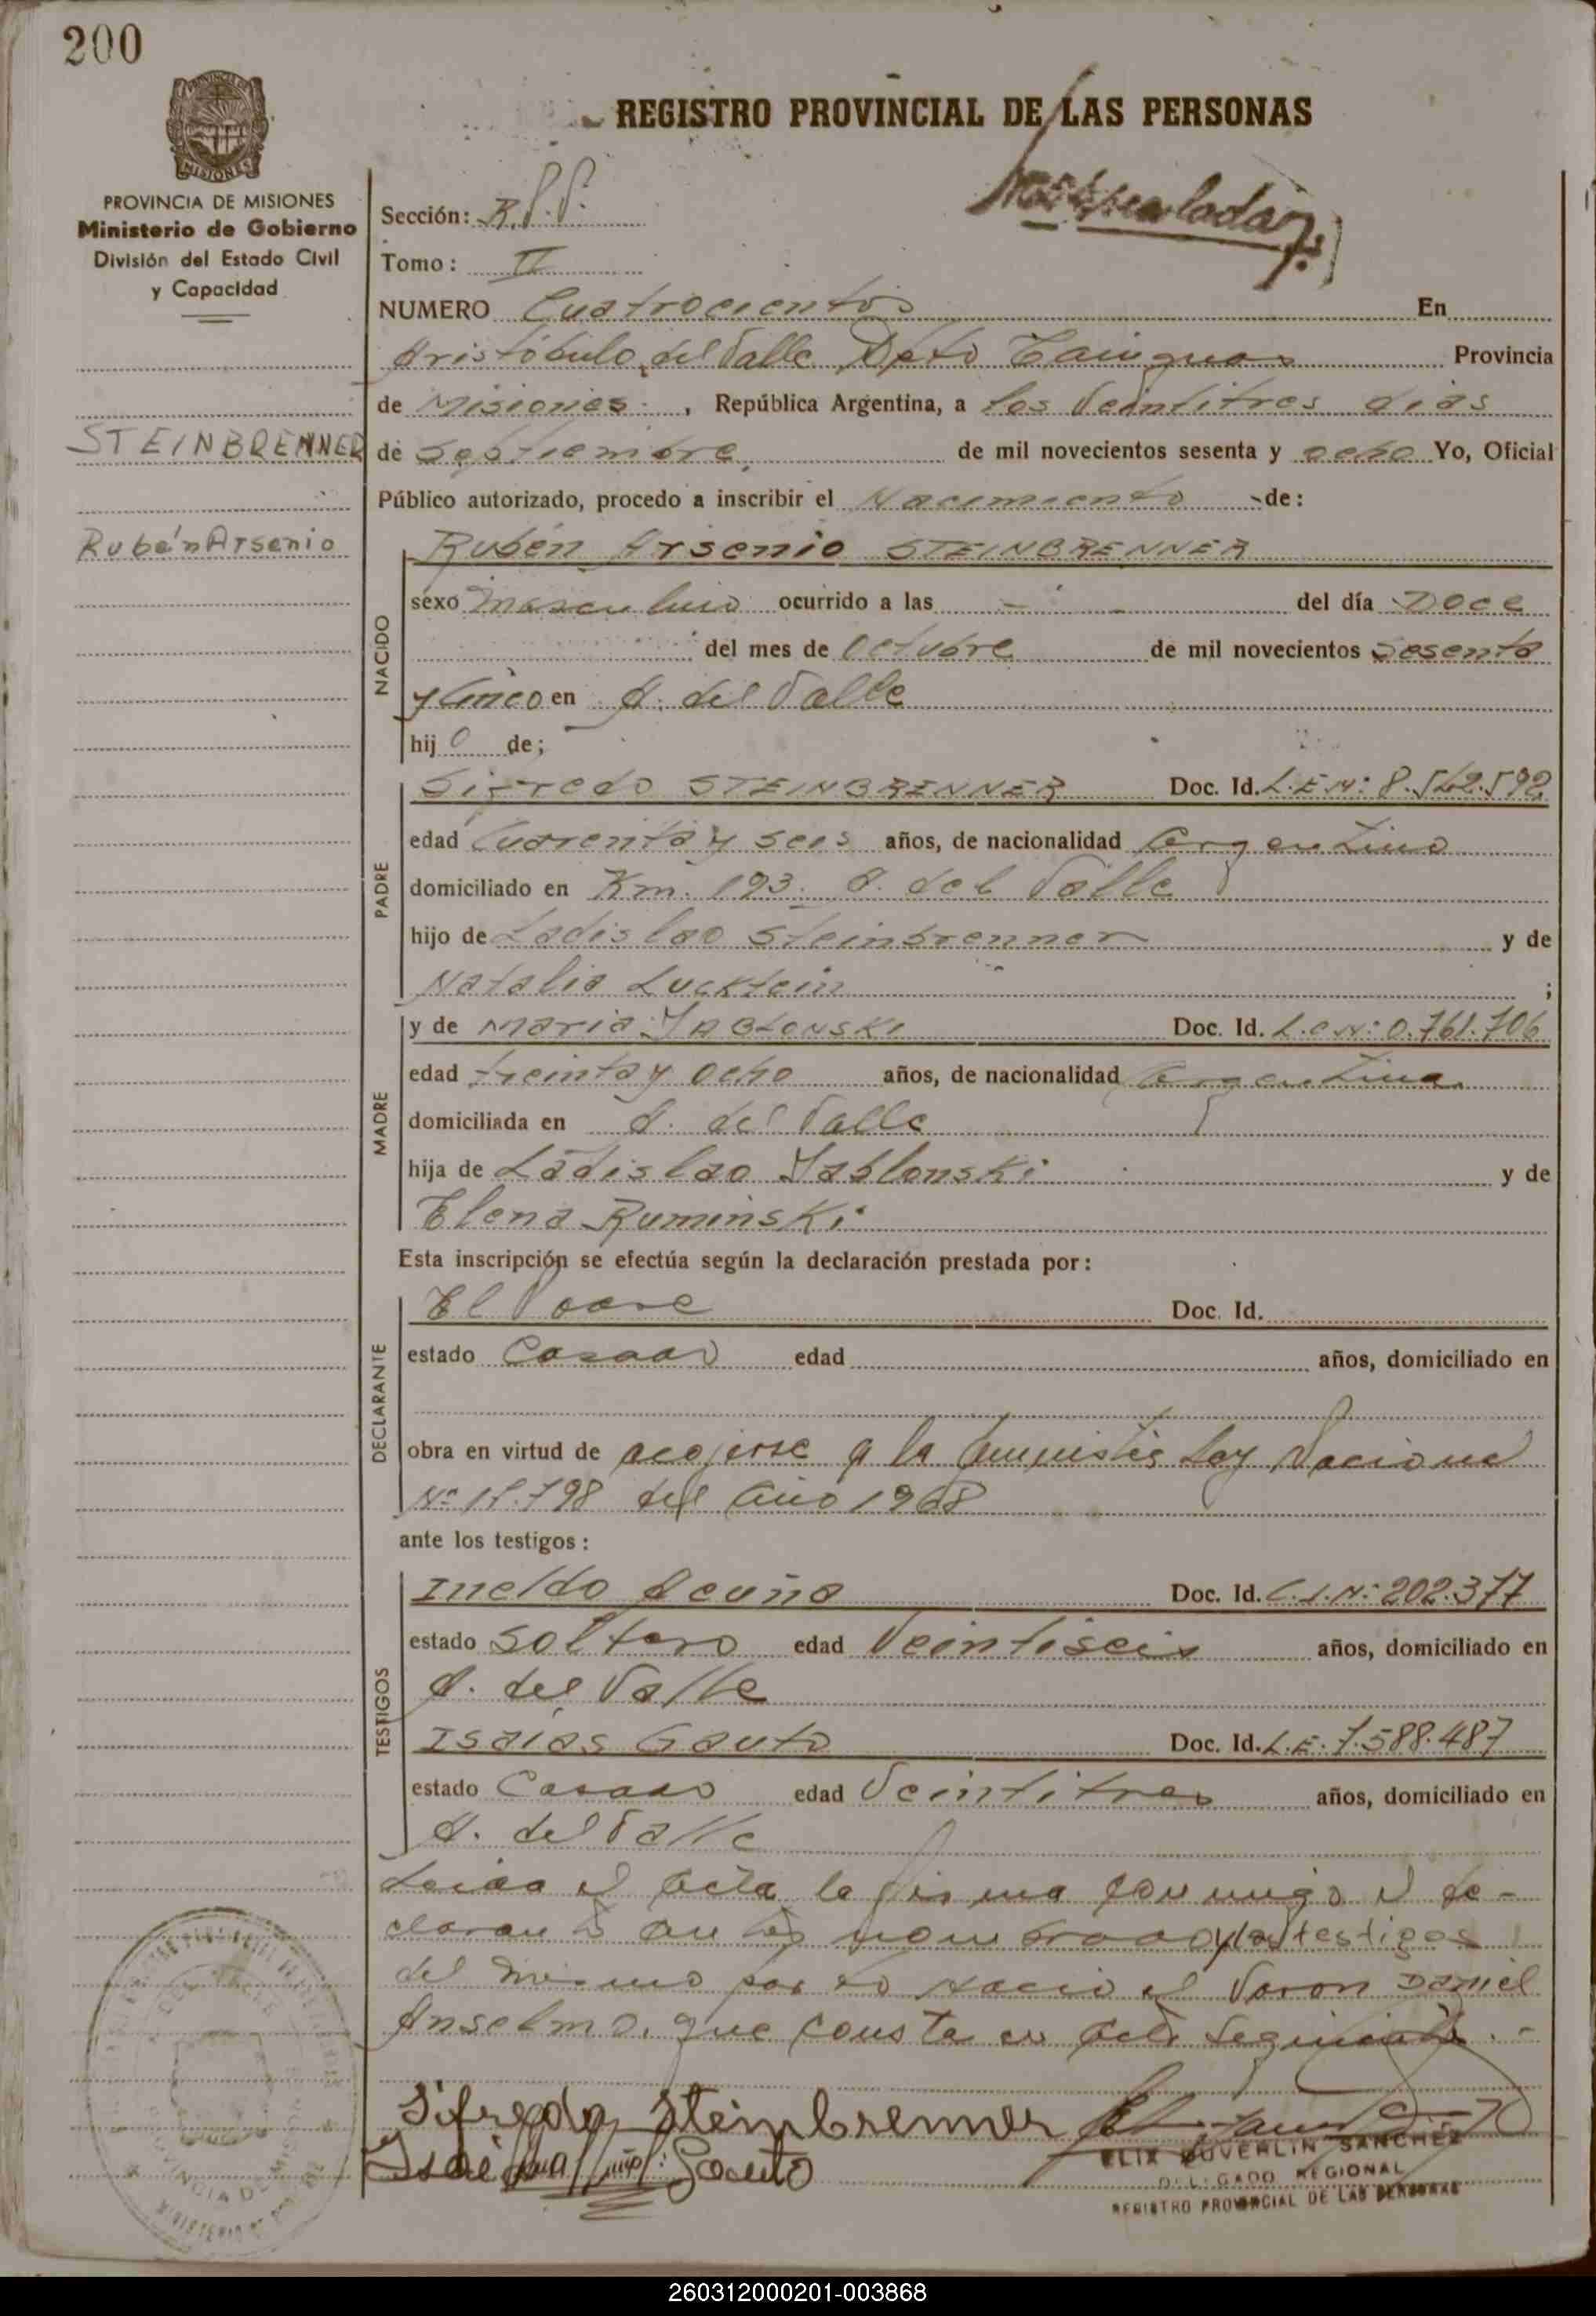 200
REGISTRO PROVINCIAL DE LAS PERSONAS
MISIONES
PROVINCIA DE MISIONES
Ministerio de Gobierno
División del Estado Civil
y Capacidad
Sección: R.P.P.
Tomo: II
NUMERO Cuatrocientos En
Aristóbulo del Valle Dpto Cainguas Provincia
de Misiones, República Argentina, a los Veintitres dias
STEINBRENNER
de Septiembre de mil novecientos sesenta y ocho Yo, Oficial
Público autorizado, procedo a inscribir el Nacimiento de:
Rubén Arsenio
Rubén Arsenio STEINBRENNER
NACIDO
sexo masculino ocurrido a las - - del día Doce
del mes de Octubre de mil novecientos Sesenta
y Cinco en A. del Valle
hijo de;
PADRE
Sifredo STEINBRENNER Doc. Id. L.E.Nº: 8.542.592
edad Cuarenta y seis años, de nacionalidad Argentino
domiciliado en Km. 193. A. del Valle
hijo de Ladislao Steinbrenner y de
Natalia Lucktein ;
MADRE
y de Maria JABLONSKI Doc. Id. L.C.Nº: 0.761.706
edad treinta y ocho años, de nacionalidad Argentina
domiciliada en A. del Valle
hija de Ladislao Jablonski y de
Elena Ruminski
Esta inscripción se efectúa según la declaración prestada por:
DECLARANTE
El Padre Doc. Id.
estado Casado edad años, domiciliado en
obra en virtud de acojerse a la Amnistia Ley Nacional
Nº 17.798 del año 1968
ante los testigos:
TESTIGOS
Ineldo Acuña Doc. Id. C.I.Nº: 202.377
estado Soltero edad Veintiseis años, domiciliado en
A. del Valle
Isaias Gauto Doc. Id. L.E. 7.588.487
estado Casado edad Veintitres años, domiciliado en
A. del Valle
Leida el acta la firma conmigo el de-
clarante antes nombrado y los testigos
del mismo nacio el Varon Daniel
Anselmo, que consta en acta seguiente.-
Sifredo Steinbrenner
Isaias Gauto
ELIX DUVERLIN SANCHEZ
DELEGADO REGIONAL
REGISTRO PROVINCIAL DE LAS PERSONAS
260312000201-003868